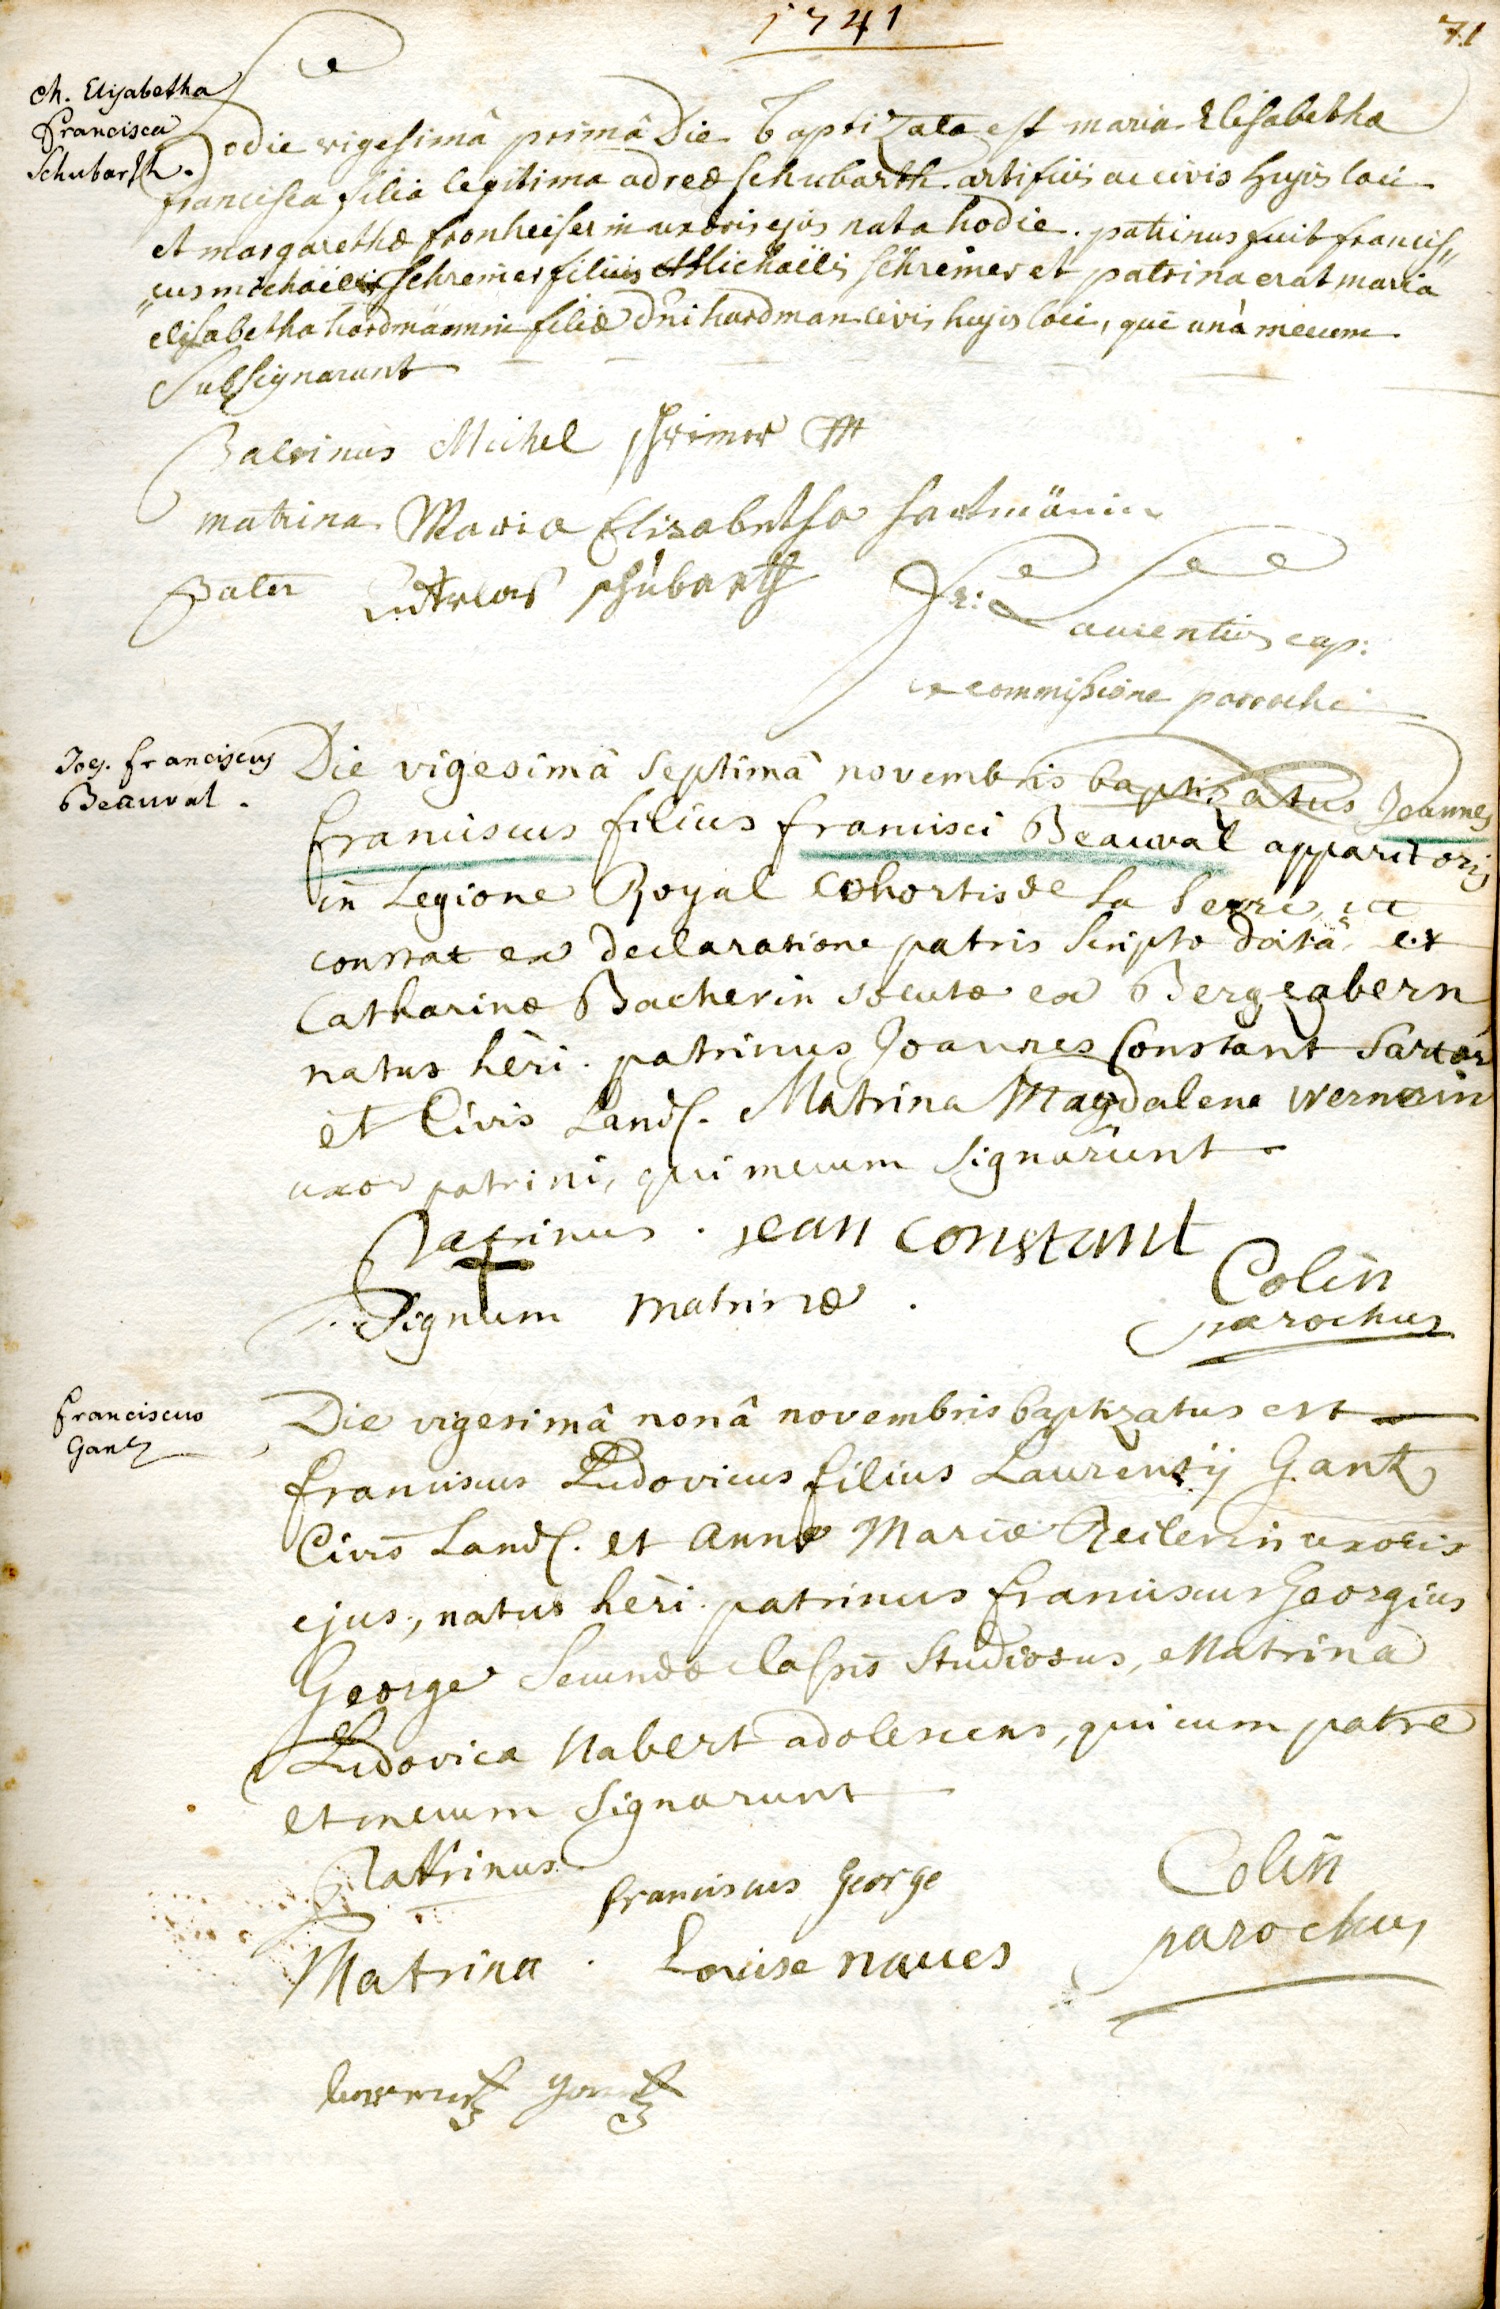 1741
71
M. Elisabetha
Francisca
Schubarth.
Hodie vigesimâ primâ Die baptizata est maria Elisabetha
francisca filia legitima adreæ schubarth artificis ac civis hujis loci
et margarethæ fronheiserin uxoris ejus nata hodie. patrinus fuit francis"
"cus michaël schreiner filius Michaëlis schreiner et patrina erat maria
elisabetha hardmännin filiæ dni hardman civis hujis loci, qui unà mecum
subsignarunt
Patrinus Michel schrimer
matrina Maria Elisabetha hartmänin
Pater schúbarth
fr: Laurentius cap:
ex commissione parochi
Joes. franciscus
Beauval.
Die vigesimâ septimâ novembris baptizatus Joannes
franciscus filius francisci Beauval apparitoris
in Legione Royal cohortis de la serre, ut
constat ex declaratione patris scripto datâ, et
Catharinæ Bacherin solutæ ex Bergzabern
natus hèri. patrinus Joannes Constant sartor
et Civis Land. Matrina Magdalena wernerin
uxor patrini, qui mecum signarunt
Patrinus. jean constant
Signum matrinæ.
Colin
parochus
franciscus
Gantz
Die vigesimâ nonâ novembris baptizatus est
franciscus Ludovicus filius Laurentij Gantz
Civis Land. et Annæ Mariæ Zeilerin uxoris
ejus, natus hèri. patrinus franciscus Georgius
George secundæ classis studiosus, Matrina
Ludovica Nabert adolescens, qui cum patre
et mecum signarunt
Patrinus franciscus George
Matrina. Louise naues
Colin
parochus